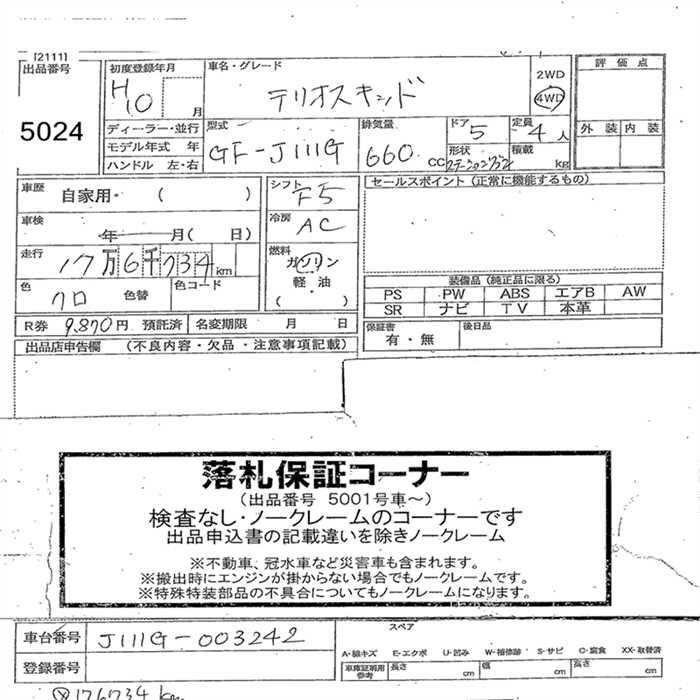 [2111]
出品番号
5024
初度登録年月
H10 月
車名・グレード
テリオスキッド
2WD
4WD
評価点
外装 内装
ディーラー・並行
モデル年式 年
ハンドル 左・右
型式
GF-J111G
排気量
660 CC
ドア
5
定員
4人
形状
ステーションワゴン
積載
kg
車歴
自家用・ ( )
シフト
F5
セールスポイント(正常に機能するもの)
車検
年 月( 日)
冷房
AC
走行
17万6千734km
燃料
ガソリン
軽・油
( ・ )
色
クロ
色替
色コード
装備品(純正品に限る)
PS PW ABS エアB AW
SR ナビ TV 本革
R券 9,870円 預託済
名変期限 月 日
保証書
有・無
後日品
出品店申告欄 (不良内容・欠品・注意事項記載)
落札保証コーナー
(出品番号 5001号車~)
検査なし・ノークレームのコーナーです
出品申込書の記載違いを除きノークレーム
※不動車、冠水車など災害車も含まれます。
※搬出時にエンジンが掛からない場合でもノークレームです。
※特殊特装部品の不具合についてもノークレームになります。
車台番号 J111G-003242
登録番号
スペア
A-線キズ E-エクボ U-凹み W-補修跡 S-サビ C-腐食 XX-取替済
車庫証明用
参考
長さ cm 幅 cm 高さ cm
176734km